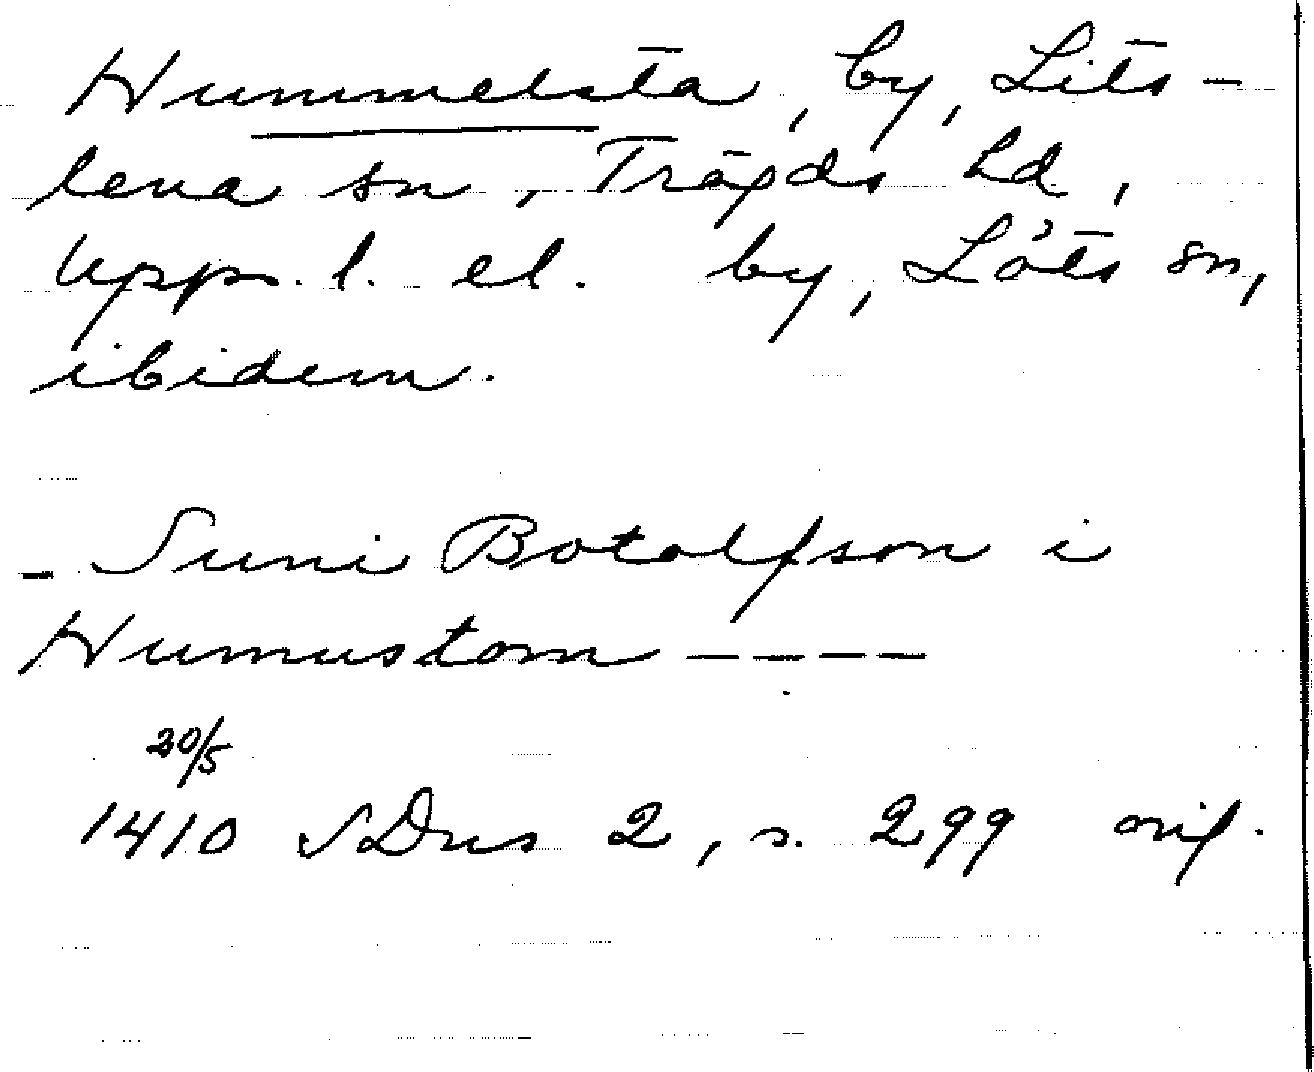 Hummelsta, by, Lits-
lena sn, Trögds hd,
Uppl. l. el. by, Löts sn,
ibidem.
- Suni Botolfson i
Humustom ----
20/5
1410 SDns 2, s. 299 orig.